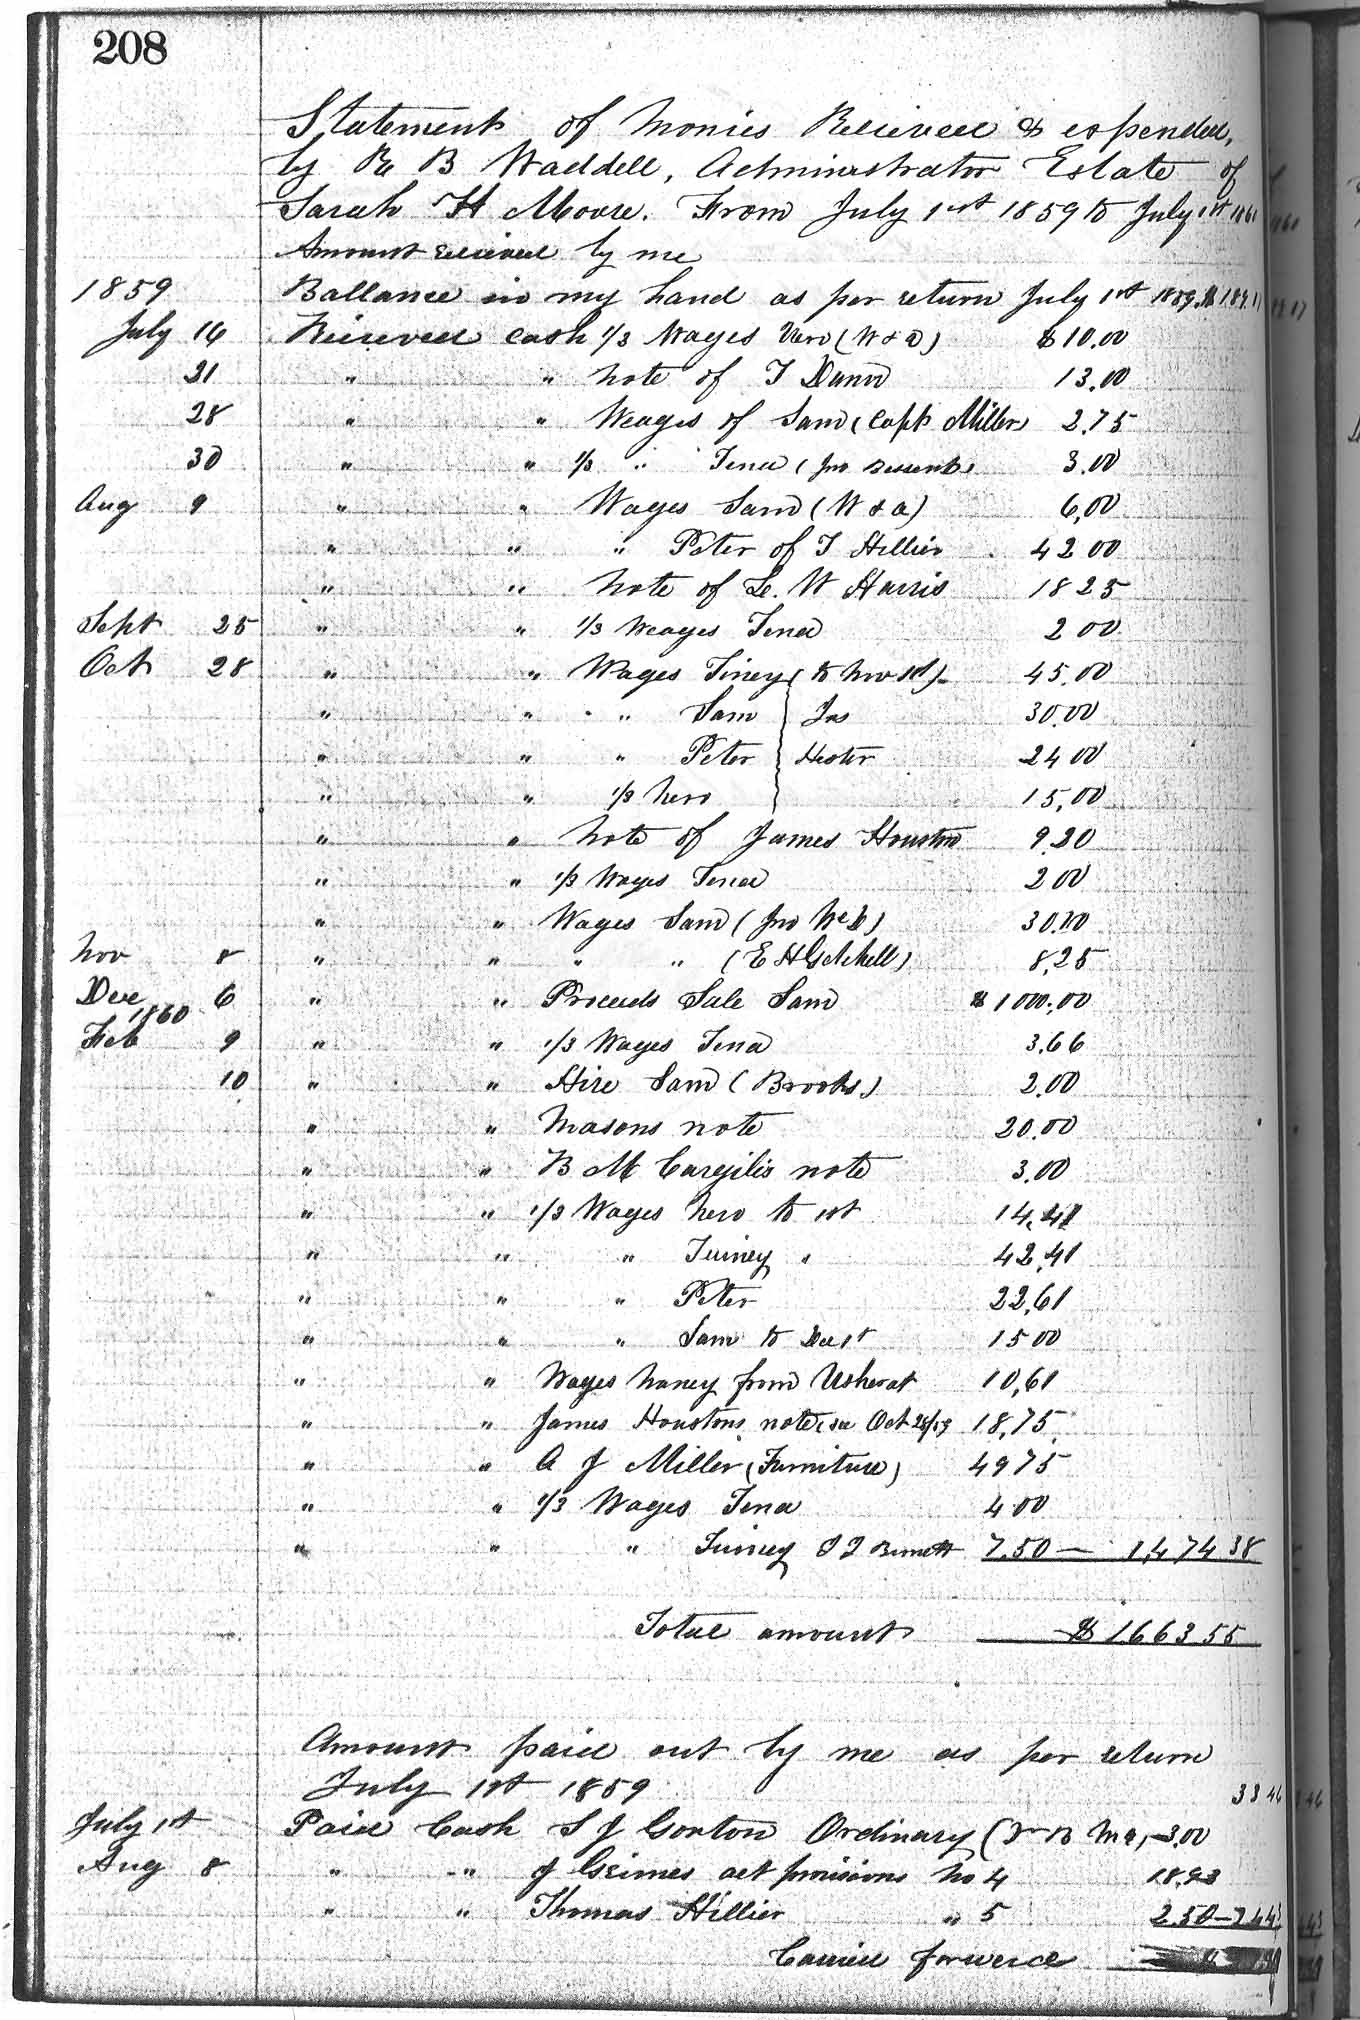 208
Statement of Monies Recieved & expended,
by R B Waddell, Administrator Estate of
Sarah H Moore. From July 1st 1859 to July 1st
Amount recieved by me
1859 Ballance in my hand as per return July 1st 1859. $189.17
July 14 Recieved cash 1/3 Wages Nero (W & a) $10.00
21 " " note of T Dunn 13.00
28 " " Weages of Sam (Capt Miller) 2.75
30 " " 1/3 " Tena (Jno 3.00
Aug 9 " " Wages Sam (W & a) 6,00
" " " Peter of T Hillier 42 00
" " Note of W Harris 18 25
Sept 25 " " 1/3 Weages Tena 2 00
Oct 28 " " Wages Finey (to Nov 1st) 45.00
" " " Sam } Jas 30.00
" " " Peter } Hester 24 00
" " 1/3 Nero } 15,00
" " Note of James Houston 9.20
" " 1/3 Wages Tena 2 00
" " Wages Sam (Jno
Nov 8 " " " " (E H Getchell) 8,25
Dec 6 " " Proceeds Sale Sam $1000.00
1860
Feb 9 " " 1/3 Wages Tena 3.66
10 " " Hire Sam (Brooks) 2.00
" " Masons note 20.00
" " B M note 3.00
" " 1/3 Wages Nero to 1st 14,41
" " " " 42,41
" " " Peter 22,61
" " " Sam to Dec 1st 15 00
" " Wages Nancy from 10,61
" " James Houstons note (see Oct 28/59 18,75
" " A J Miller (Furniture) 49 75
" " 1/3 Wages Tena 4 00
" " " 7.50 — 1,474 38
Total amount $1663 55
Amount paid out by me as per return
July 1st 1859 33 46
July 1st Paid Cash S J Gorton Ordinary 3.00
Aug 8 " " J Grimes act provisions No 4
" " Thomas Hillier " 5 2.50
Carried forward